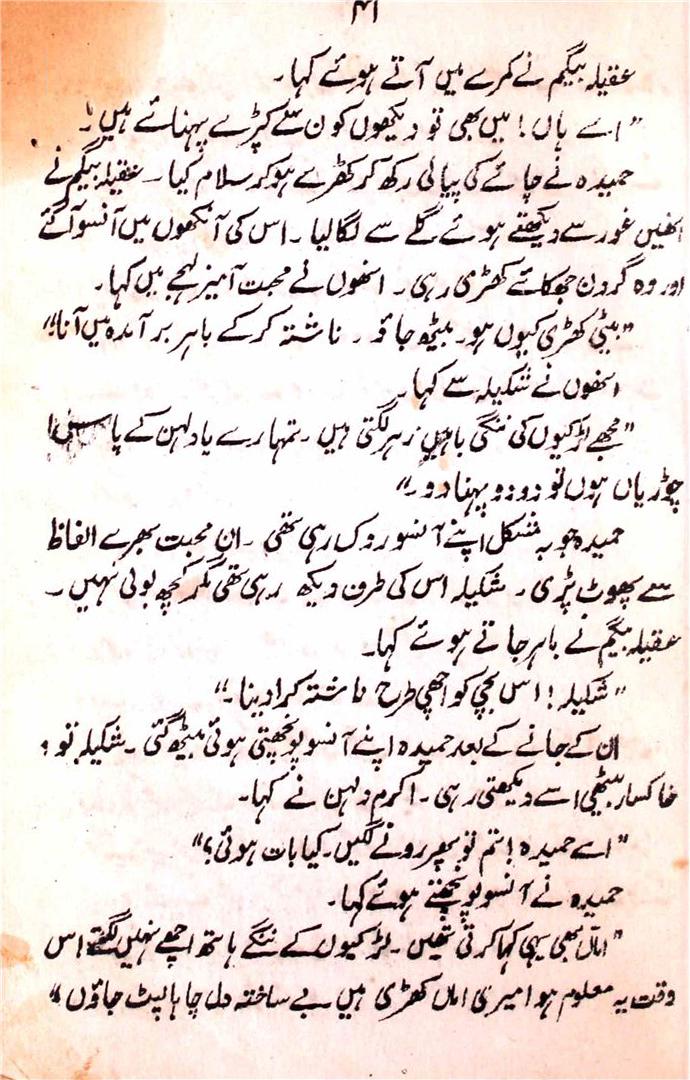 ۴۱
عقیلہ بیگم نے کمرے میں آتے ہوئے کہا۔
”اے ہاں! میں بھی تو دیکھوں کون سے کپڑے پہنائے ہیں۔
حمیدہ نے چائے کی پیالی رکھ کر کھڑے ہو کر سلام کیا۔ عقیلہ بیگم نے
انھیں غور سے دیکھتے ہوئے گلے سے لگا لیا۔ اس کی آنکھوں میں آنسو آ گئے
اور وہ گردن جھکائے کھڑی رہی۔ انھوں نے محبت آمیز لہجے میں کہا۔
”بیٹی کھڑی کیوں ہو۔ بیٹھ جاؤ۔ ناشتہ کر کے باہر برآمدہ میں آنا۔“
انھوں نے شکیلہ سے کہا۔
”مجھے لڑکیوں کی ننگی باہیں زہر لگتی ہیں۔ تمہارے یا دلہن کے پاس
چوڑیاں ہوں تو دو دو پہنا دو۔“
حمیدہ جو بہ مشکل اپنے آنسو روک رہی تھی۔ ان محبت بھرے الفاظ
سے پھوٹ پڑی۔ شکیلہ اس کی طرف دیکھ رہی تھی مگر کچھ بولی نہیں۔
عقیلہ بیگم نے باہر جاتے ہوئے کہا۔
”شکیلہ! اس بچی کو اچھی طرح ناشتہ کرا دینا۔“
ان کے جانے کے بعد حمیدہ اپنے آنسو پونچھتی ہوئی بیٹھ گئی۔ شکیلہ تو
خاکسار بیٹھی اسے دیکھتی رہی۔ اکرم دلہن نے کہا۔
”اے حمیدہ! تم تو پھر رونے لگیں۔ کیا بات ہوئی؟“
حمیدہ نے آنسو پونچھتے ہوئے کہا۔
”اماں بھی یہی کہا کرتی تھیں۔ لڑکیوں کے ننگے ہاتھ اچھے نہیں لگتے اس
وقت یہ معلوم ہوا میری اماں کھڑی ہیں بے ساختہ دل چاہا لپٹ جاؤں“